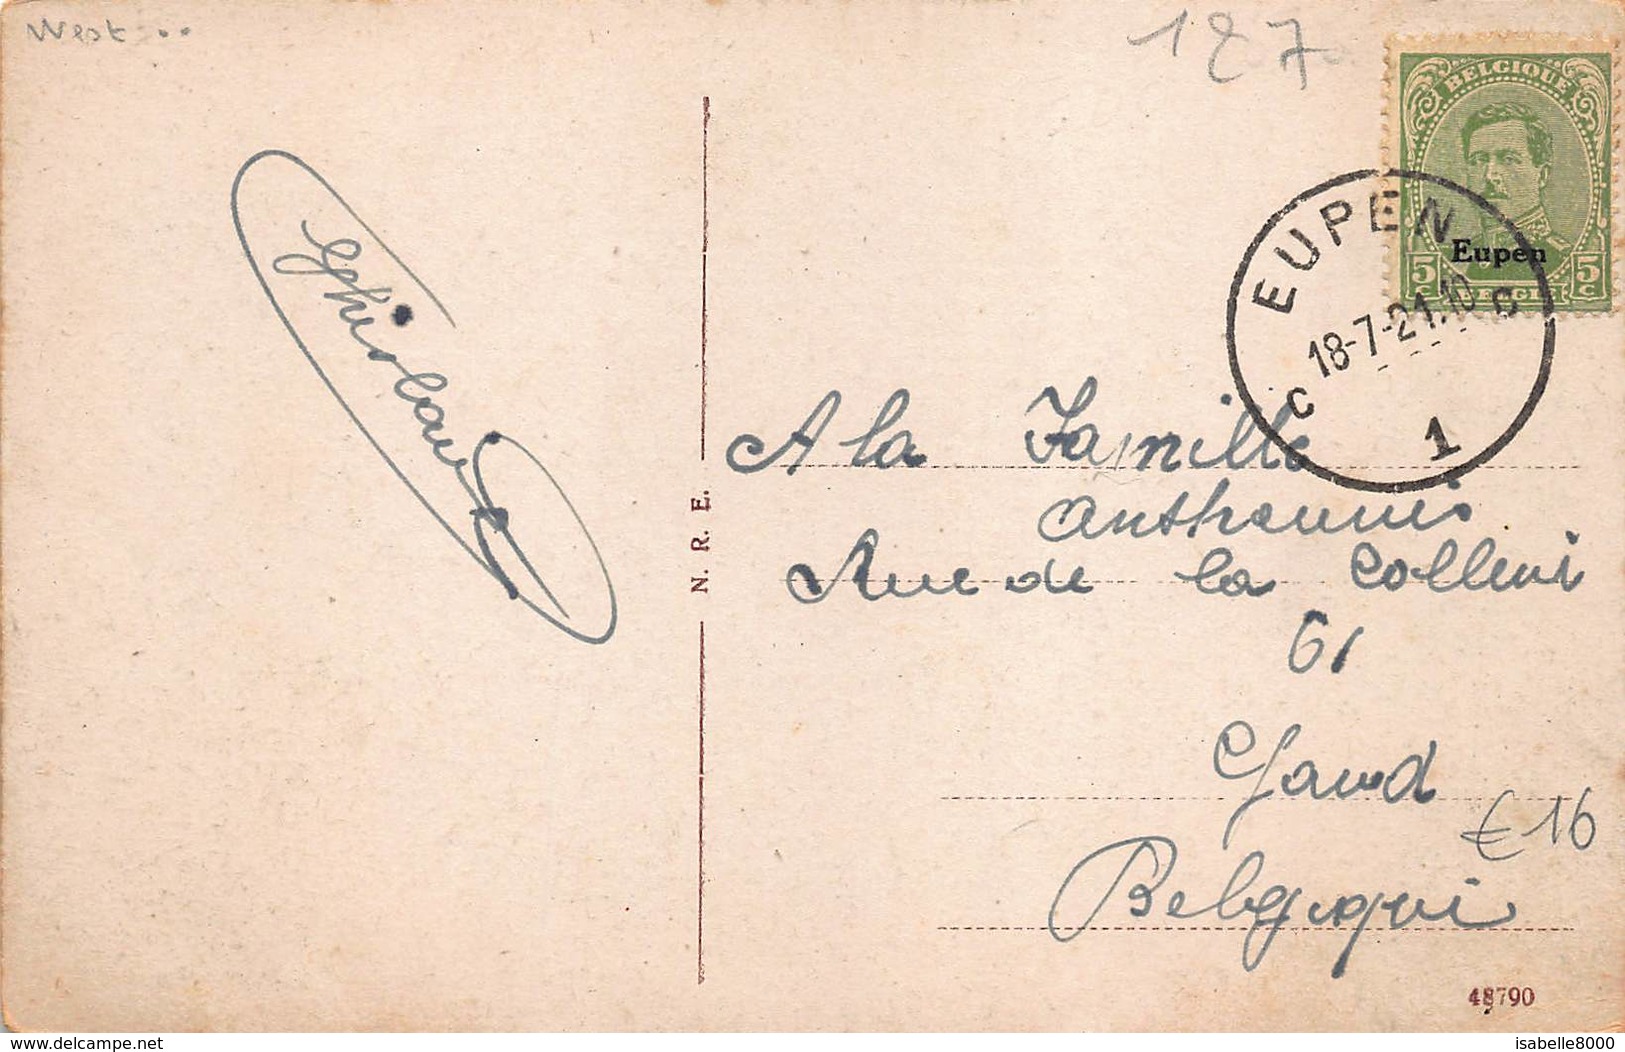 West...
187
BELGIQUE
Eupen
5c BELGIË 5c
EUPEN
18-7-21.10
C C
1
Ghislaine
A la Famille
Antheunis
Rue de la Colline
61
Gand
Belgique
€16
N. R. E.
48790
delcampe.net
isabelle8000